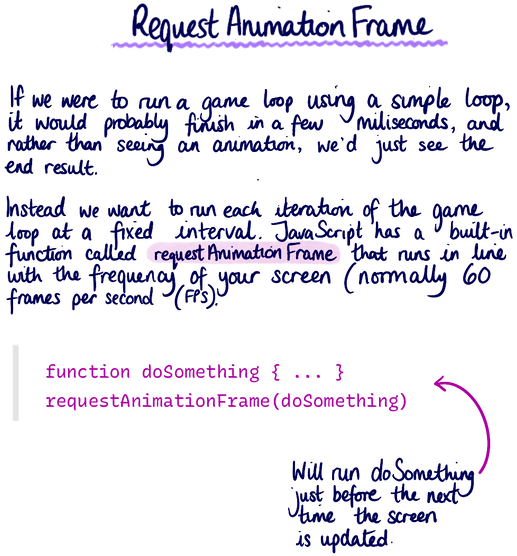 Request Animation Frame
If we were to run a game loop using a simple loop,
it would probably finish in a few miliseconds, and
rather than seeing an animation, we'd just see the
end result.
Instead we want to run each iteration of the game
loop at a fixed interval. JavaScript has a built-in
function called requestAnimationFrame that runs in line
with the frequency of your screen (normally 60
frames per second (FPS).
function doSomething { ... }
requestAnimationFrame(doSomething)
Will run doSomething
just before the next
time the screen
is updated.